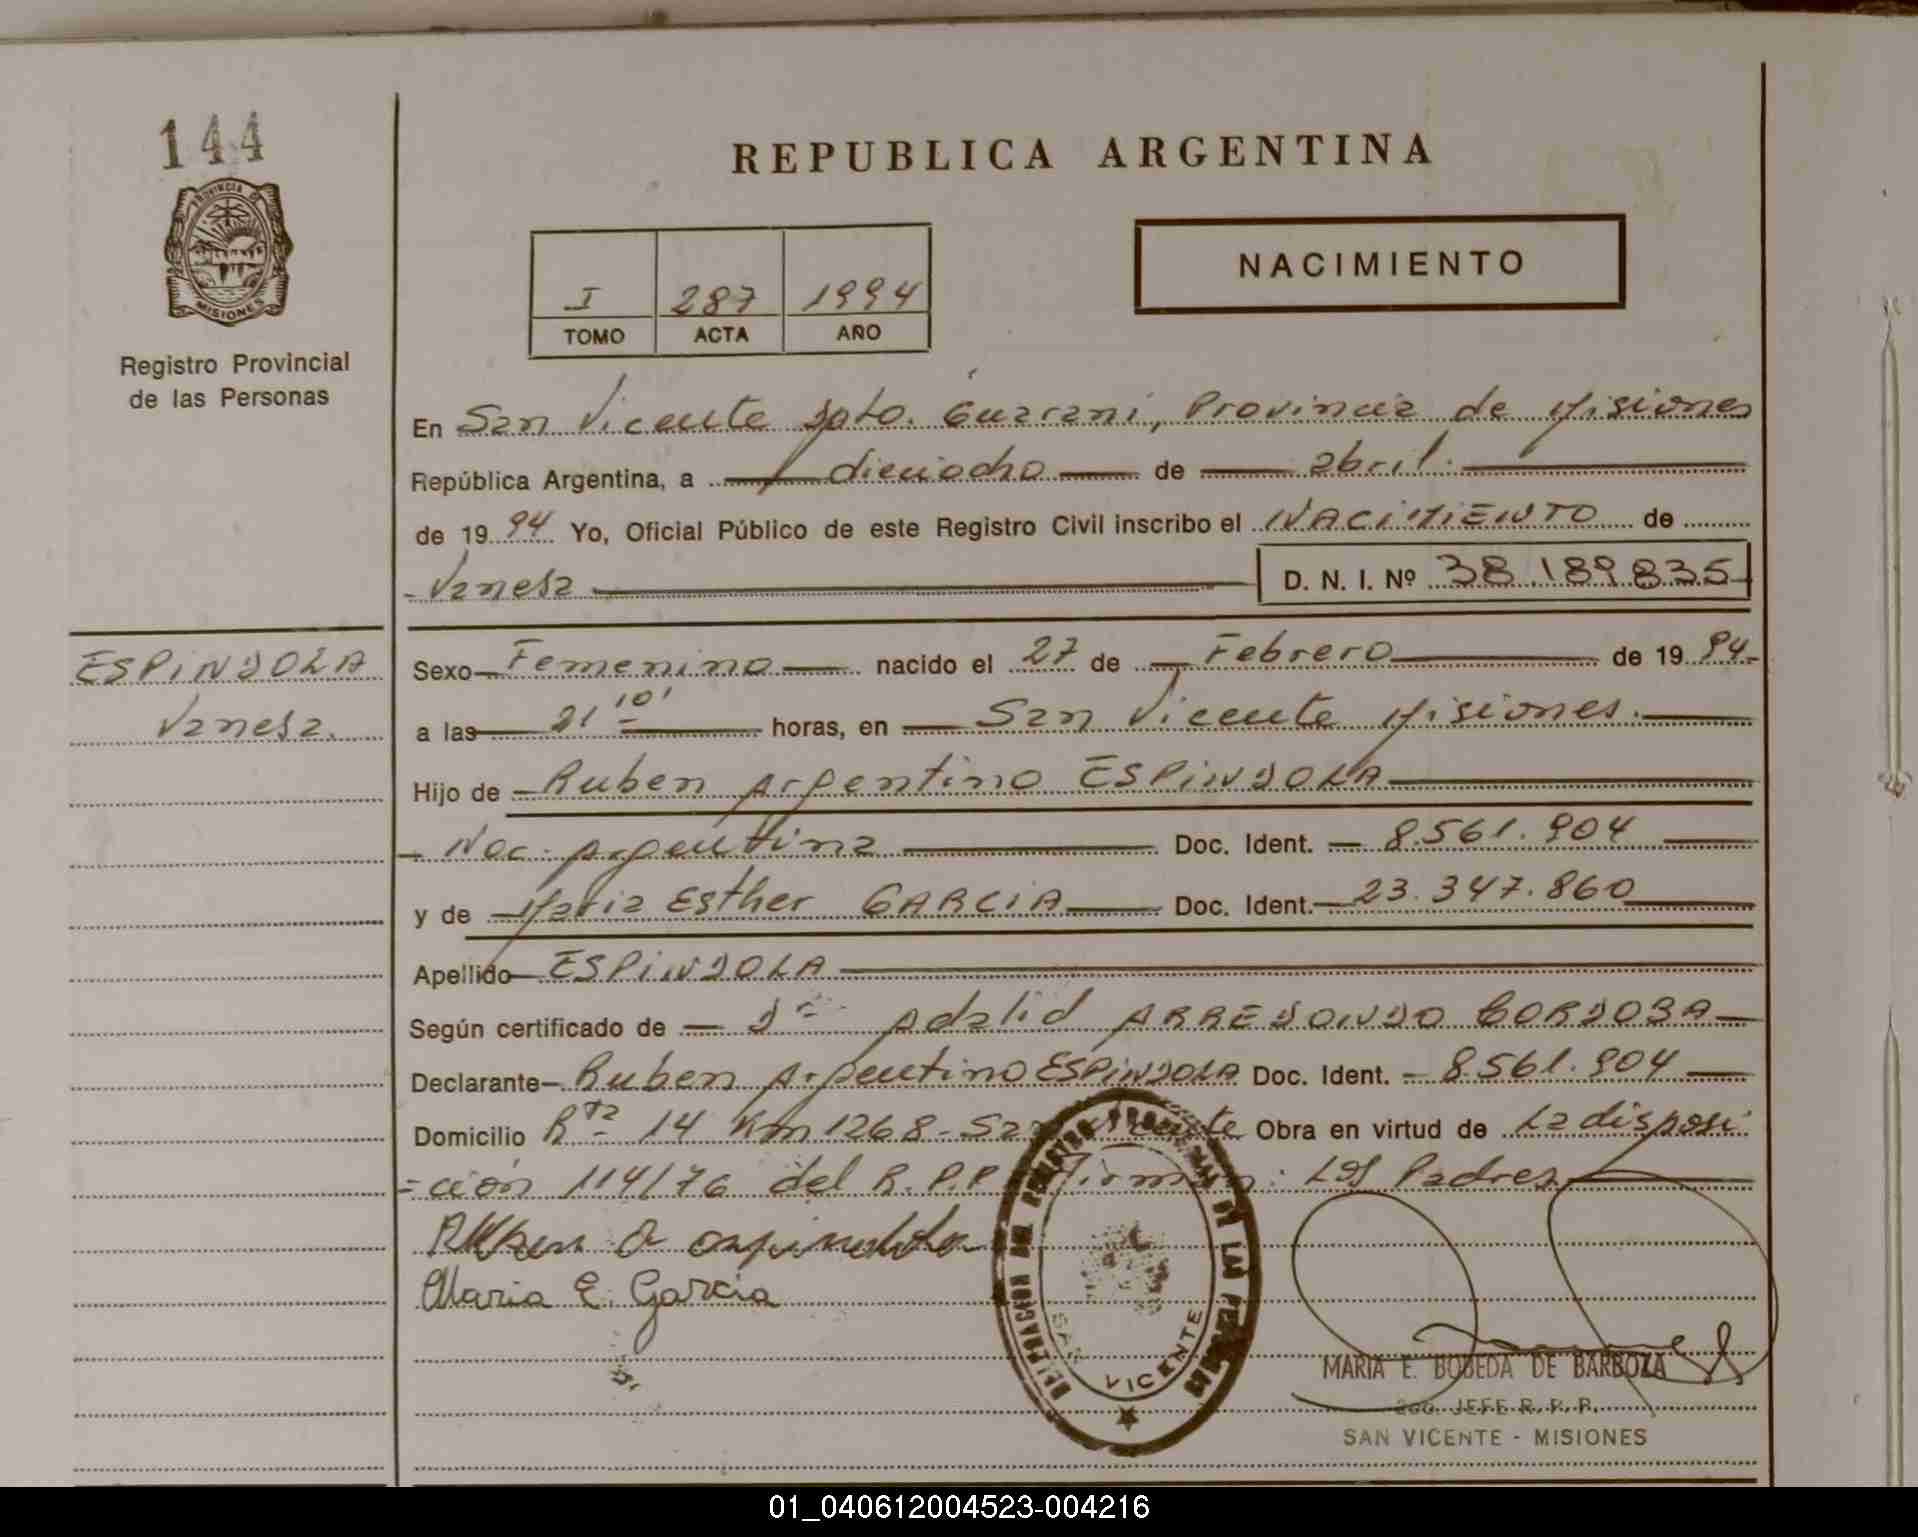 144
PROVINCIA DE
MISIONES
Registro Provincial
de las Personas
REPUBLICA ARGENTINA
I 287 1994
TOMO ACTA AÑO
NACIMIENTO
En San Vicente Dpto. Guarani, Provincia de Misiones
República Argentina, a dieciocho de abril.
de 1994 Yo, Oficial Público de este Registro Civil inscribo el NACIMIENTO de
Vanesa D. N. I. Nº 38.189.835
ESPINDOLA
Vanesa.
Sexo Femenino nacido el 27 de Febrero de 1994
a las 21 10' horas, en San Vicente Misiones.
Hijo de Ruben Argentino ESPINDOLA
Nac. Argentina Doc. Ident. 8.561.904
y de Maria Esther GARCIA Doc. Ident. 23.347.860
Apellido ESPINDOLA
Según certificado de Dr. Adalid ARREDONDO CORDOBA
Declarante Ruben Argentino ESPINDOLA Doc. Ident. 8.561.904
Domicilio Rta 14 Km 1268 - San Vicente Obra en virtud de La disposi
=ción 114/76 del R.P.P. Firman: Los Padres
Ruben A espindola
Maria E. Garcia
DELEGACION DEL REGISTRO PROVINCIAL DE LAS PERSONAS
SAN VICENTE
MARIA E. BOBEDA DE BARBOZA
JEFE R. P. P.
SAN VICENTE - MISIONES
01_040612004523-004216